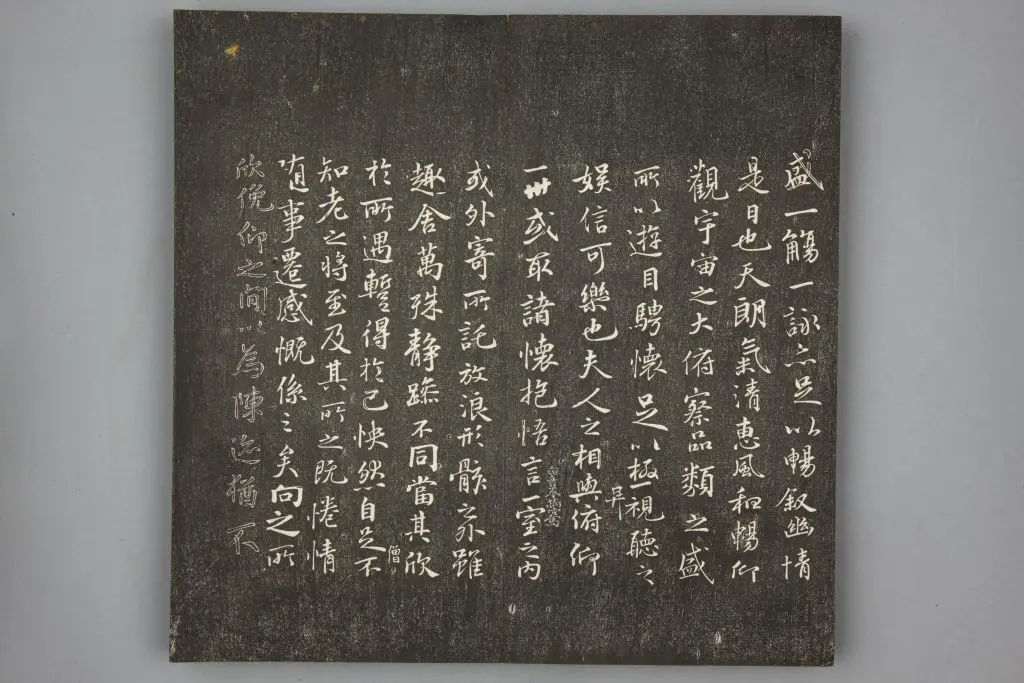 盛一觴一詠亦足以暢敘幽情
是日也天朗氣清惠風和暢仰
觀宇宙之大俯察品類之盛
所以遊目騁懷足以極視聽之
娛信可樂也夫人之相與俯仰
一世或取諸懷抱悟言一室之內
或外寄所託放浪形骸之外雖
趣舍萬殊靜躁不同當其欣
於所遇蹔得於己怏然自足不
僧
知老之將至及其所之既惓情
隨事遷感慨係之矣向之所
欣俛仰之閒以為陳迹猶不